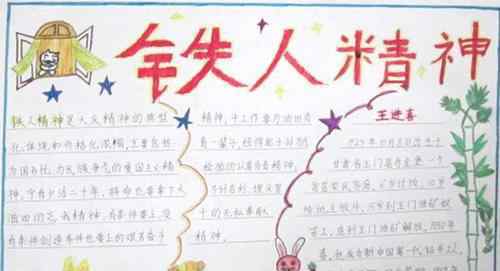 铁人精神
铁人精神是大庆精神的典型
化、体现和人格化浓缩,主要包括
为国分忧、为民族争气的爱国主义精
神,宁肯少活二十年,拼命也要拿下大
油田的忘我精神,有条件要上,没
有条件创造条件也要上的艰苦奋斗
精神,干工作要为油田负
责一辈子,经得起子孙万代
检验的认真负责精神,
不计名利,埋头苦
干的无私奉献
精神。
王进喜
1923年10月8日出生于
甘肃省玉门县赤金堡一个
贫苦农民家庭,6岁讨饭,10岁
给地主放牛,15岁到玉门油矿做
苦工,直到玉门油矿解放。1950年
春,他成为新中国第一代钻井工人